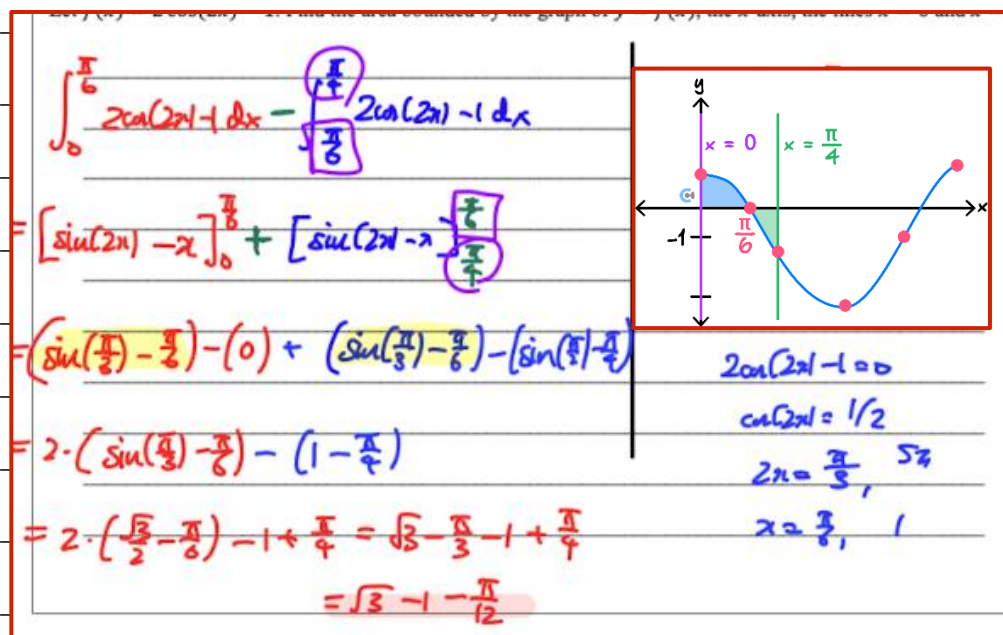 ∫₀^(π/6) 2cos(2x)-1 dx - ∫_(π/6)^(π/4) 2cos(2x)-1 dx
= [sin(2x) - x]₀^(π/6) + [sin(2x)-x]_(π/4)^(π/6)
= (sin(π/3) - π/6) - (0) + (sin(π/3) - π/6) - (sin(π/2) - π/4)
= 2·(sin(π/3) - π/6) - (1 - π/4)
= 2·(√3/2 - π/6) - 1 + π/4 = √3 - π/3 - 1 + π/4
= √3 - 1 - π/12
y
x = 0
x = π/4
x
π/6
-1
2cos(2x)-1=0
cos(2x) = 1/2
2x = π/3,
x = π/6,